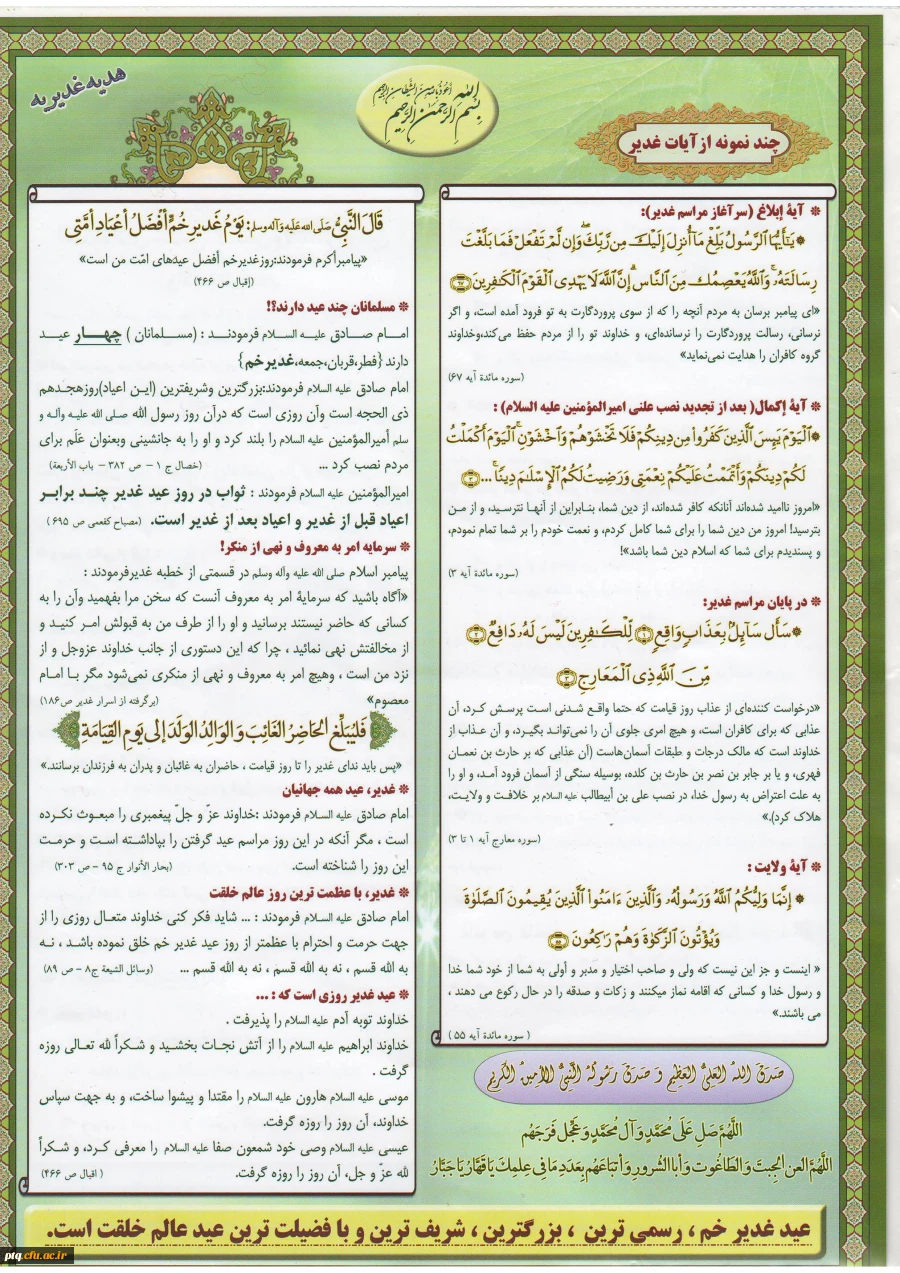 هدیه غدیریه
أعوذ بالله من الشیطان الرجیم
بسم الله الرحمن الرحیم
چند نمونه از آیات غدیر
* آیهٔ إبلاغ (سرآغاز مراسم غدیر):
* يَـٰٓأَيُّهَا ٱلرَّسُولُ بَلِّغْ مَآ أُنزِلَ إِلَيْكَ مِن رَّبِّكَ ۖ وَإِن لَّمْ تَفْعَلْ فَمَا بَلَّغْتَ
رِسَالَتَهُۥ ۚ وَٱللَّهُ يَعْصِمُكَ مِنَ ٱلنَّاسِ ۗ إِنَّ ٱللَّهَ لَا يَهْدِى ٱلْقَوْمَ ٱلْكَـٰفِرِينَ ﴿٦٧﴾
«ای پیامبر برسان به مردم آنچه را که از سوی پروردگارت به تو فرود آمده است، و اگر
نرسانی، رسالت پروردگارت را نرسانده‌ای، و خداوند تو را از مردم حفظ می‌کند،وخداوند
گروه کافران را هدایت نمی‌نماید»
(سوره مائدة آیه ۶۷)
* آیهٔ إکمال( بعد از تجدید نصب علنی امیرالمؤمنین علیه السلام) :
*ٱلْيَوْمَ يَئِسَ ٱلَّذِينَ كَفَرُوا۟ مِن دِينِكُمْ فَلَا تَخْشَوْهُمْ وَٱخْشَوْنِ ۚ ٱلْيَوْمَ أَكْمَلْتُ
لَكُمْ دِينَكُمْ وَأَتْمَمْتُ عَلَيْكُمْ نِعْمَتِى وَرَضِيتُ لَكُمُ ٱلْإِسْلَـٰمَ دِينًا ۚ... ﴿٣﴾
«امروز ناامید شده‌اند آنانکه کافر شده‌اند، از دین شما، بنابراین از آنها نترسید، و از من
بترسید! امروز من دین شما را برای شما کامل کردم، و نعمت خودم را بر شما تمام نمودم،
و پسندیدم برای شما که اسلام دین شما باشد»!
(سوره مائدة آیه ۳)
* در پایان مراسم غدیر:
*سَأَلَ سَآئِلٌۢ بِعَذَابٍ وَاقِعٍ ﴿١﴾ لِّلْكَـٰفِرِينَ لَيْسَ لَهُۥ دَافِعٌ ﴿٢﴾
مِّنَ ٱللَّهِ ذِى ٱلْمَعَارِجِ ﴿٣﴾
«درخواست کننده‌ای از عذاب روز قیامت که حتما واقع شدنی است پرسش کرد، آن
عذابی که برای کافران است، و هیچ امری جلوی آن را نمی‌تواند بگیرد، و آن عذاب از
خداوند است که مالک درجات و طبقات آسمان‌هاست (آن عذابی که بر حارث بن نعمان
فهری، و یا بر جابر بن نصر بن حارث بن کلده، بوسیله سنگی از آسمان فرود آمد، و او را
به علت اعتراض به رسول خدا، در نصب علی بن أبیطالب علیه السلام بر خلافت و ولایت،
هلاک کرد).»
(سوره معارج آیه ۱ تا ۳)
* آیهٔ ولایت :
* إِنَّمَا وَلِيُّكُمُ ٱللَّهُ وَرَسُولُهُۥ وَٱلَّذِينَ ءَامَنُوا۟ ٱلَّذِينَ يُقِيمُونَ ٱلصَّلَوٰةَ
وَيُؤْتُونَ ٱلزَّكَوٰةَ وَهُمْ رَٰكِعُونَ ﴿٥٥﴾
« اینست و جز این نیست که ولی و صاحب اختیار و مدبر و أولی به شما از خود شما خدا
و رسول خدا و کسانی که اقامه نماز میکنند و زکات و صدقه را در حال رکوع می دهند ،
می باشند.»
( سوره مائدة آیه ۵۵ )
صدق الله العلی العظیم و صدق رسوله النبی الأمین الکریم
اللّهُمَّ صَلِّ عَلَی مُحَمَّدٍ وَآلِ مُحَمَّدٍ وَعَجِّل فَرَجَهُم
اللّهُمَّ العن الجِبتَ وَالطّاغُوتَ وَأبا الشُّرورِ وَأتباعَهُم بِعَدَدِ ما فی عِلمِكَ یا قَهّارُ یا جَبّارُ
قالَ النَّبِیُّ صَلَّی الله عَلَیه وَآله وسلم: یَوْمُ غَدیرِ خُمٍّ أفْضَلُ أعْیادِ أمَّتی
«پیامبراکرم فرمودند:روزغدیرخم أفضل عیدهای امّت من است»
(إقبال ص ۴۶۶)
* مسلمانان چند عید دارند؟!
امـام صـادق علیـه السـلام فرمودنـد : (مسـلمانان ) چهـار عیـد
دارند {فطر،قربان،جمعه،غدیرخم}
امام صادق علیه السلام فرمودند:بزرگترین وشریفترین (ایـن اعیاد)روزهجـدهم
ذی الحجه است وآن روزی است که درآن روز رسول الله صلی الله علیـه وآلـه و
سلم أمیرالمؤمنین علیه السلام را بلند کرد و او را به جانشینی وبعنوان عَلَم برای
مردم نصب کرد ... (خصال ج ۱ - ص ۳۸۲ - باب الأربعة)
امیرالمؤمنین علیه السلام فرمودند : ثواب در روز عید غدیر چنـد برابـر
اعیاد قبل از غدیر و اعیاد بعد از غدیر است. (مصباح کفعمی ص ۶۹۵ )
* سرمایه امر به معروف و نهی از منکر!
پیامبر اسلام صلی الله علیه وآله وسلم در قسمتی از خطبه غدیرفرمودند :
«آگاه باشید که سرمایهٔ امر به معروف آنست که سخن مرا بفهمید وآن را به
کسانی که حاضر نیستند برسانید و او را از طرف من به قبولش امـر کنیـد و
از مخالفتش نهی نمائید ، چرا که این دستوری از جانب خداوند عزوجل و از
نزد من است ، وهیچ امر به معروف و نهی از منکری نمی‌شود مگر با امـام
معصوم» (برگرفته از اسرار غدیر ص۱۸۶)
فَلیُبَلِّغِ الحَاضِرُ الغَائِبَ وَالوَالِدُ الوَلَدَ إلی یَومِ القِیَامَةِ
«پس باید ندای غدیر را تا روز قیامت ، حاضران به غائبان و پدران به فرزندان برسانند.»
* غدیر، عید همه جهانیان
امام صادق علیه السلام فرمودند :خداوند عزّ و جلّ پیغمبری را مبعـوث نکـرده
است ، مگر آنکه در این روز مراسم عید گرفتن را بپاداشـته است و حرمـت
این روز را شناخته است. (بحار الأنوار ج ۹۵ - ص ۳۰۳)
* غدیر، با عظمت ترین روز عالم خلقت
امام صادق علیه السلام فرمودند : ... شاید فکر کنی خداوند متعـال روزی را از
جهت حرمت و احترام با عظمتر از روز عید غدیر خم خلق نموده باشد ، نـه
به الله قسم ، نه به الله قسم ، نه به الله قسم ... (وسائل الشیعة ج۸ - ص ۸۹)
* عید غدیر روزی است که : ...
خداوند توبه آدم علیه السلام را پذیرفت .
خداوند ابراهیم علیه السلام را از آتش نجات بخشید و شکراً لله تعـالی روزه
گرفت .
موسی علیه السلام هارون علیه السلام را مقتدا و پیشوا ساخت، و به جهت سپاس
خداوند، آن روز را روزه گرفت.
عیسی علیه السلام وصی خود شمعون صفا علیه السلام را معرفی کـرد، و شـکراً
لله عزّ و جل، آن روز را روزه گرفت. ( اقبال ص ۴۶۶)
عید غدیر خم ، رسمی ترین ، بزرگترین ، شریف ترین و با فضیلت ترین عید عالم خلقت است.
ptq.cfu.ac.ir